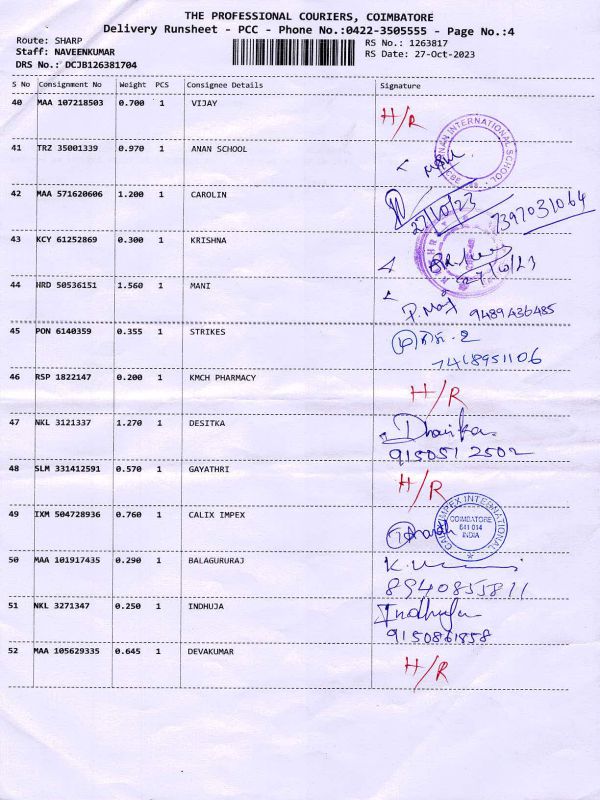 THE PROFESSIONAL COURIERS, COIMBATORE
Delivery Runsheet - PCC - Phone No.:0422-3505555 - Page No.:4
Route: SHARP
Staff: NAVEENKUMAR
DRS No.: DCJB126381704
RS No.: 1263817
RS Date: 27-Oct-2023
S No Consignment No Weight PCS Consignee Details Signature
40 MAA 107218503 0.700 1 VIJAY H/R
41 TRZ 35001339 0.970 1 ANAN SCHOOL
INTERNATIONAL SCHOOL
42 MAA 571620606 1.200 1 CAROLIN 27/10/23 7397031064
43 KCY 61252869 0.300 1 KRISHNA 27/10/23
44 HRD 50536151 1.560 1 MANI 9489436485
45 PON 6140359 0.355 1 STRIKES
7418951106
46 RSP 1822147 0.200 1 KMCH PHARMACY H/R
47 NKL 3121337 1.270 1 DESITKA
9150512502
48 SLM 331412591 0.570 1 GAYATHRI H/R
49 IXM 504728936 0.760 1 CALIX IMPEX
CALIX IMPEX INTERNATIONAL
COIMBATORE
641 014
INDIA
50 MAA 101917435 0.290 1 BALAGURURAJ
8940855811
51 NKL 3271347 0.250 1 INDHUJA Indhuja
9150861858
52 MAA 105629335 0.645 1 DEVAKUMAR H/R